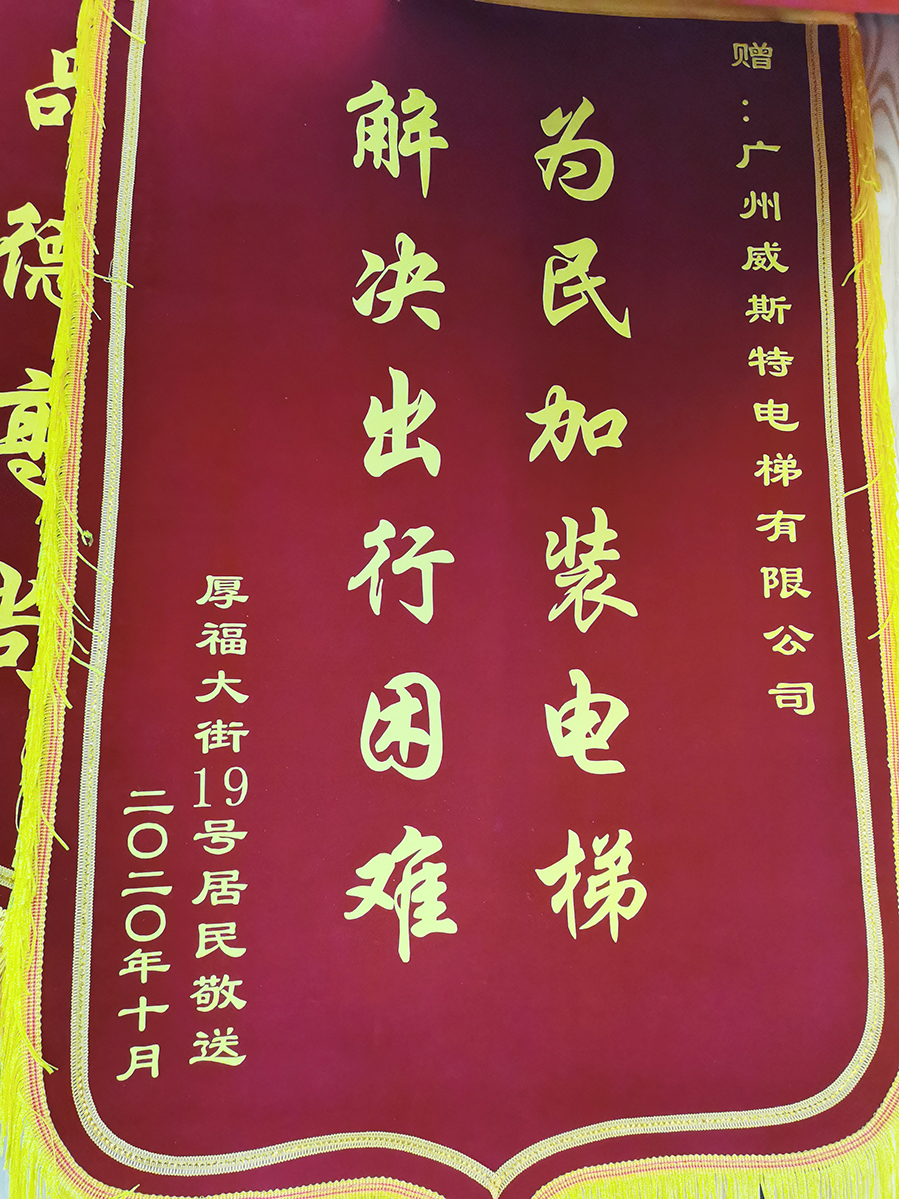 赠:广州威斯特电梯有限公司
为民加装电梯
解决出行困难
厚福大街19号居民敬送
二〇二〇年十月
品德高尚